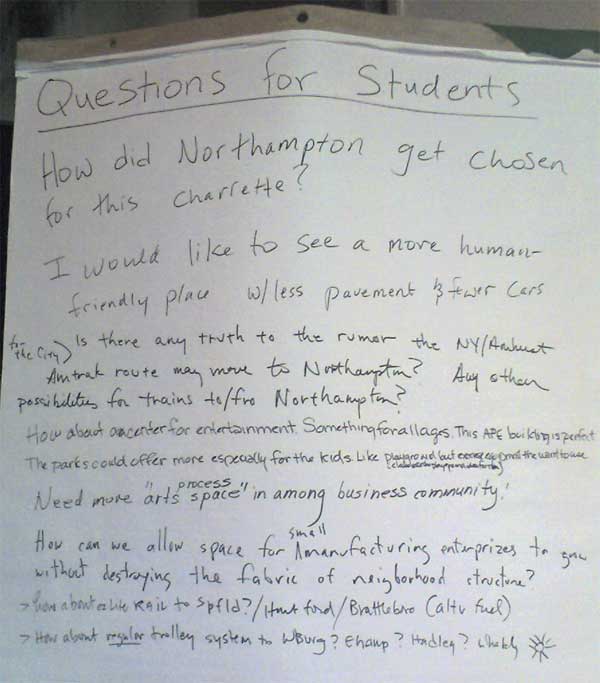 Questions for Students
How did Northampton get chosen
for this charrette?
I would like to see a more human-
friendly place w/less pavement & fewer cars
(for the City) Is there any truth to the rumor the NY/Amherst
Amtrak route may move to Northampton? Any other
possibilities for trains to/fro Northampton?
How about a center for entertainment. Something for all ages. This APE building is perfect
The parks could offer more especially for the kids. Like playground but
Need more "arts process space" in among business community!
How can we allow space for small manufacturing enterprizes to grow
without destroying the fabric of neighborhood structure?
> How about a Lite Rail to Spfld?/Hartford/Brattleboro (altv fuel)
> How about regular trolley system to WBurg? Ehamp? Hadley? Whately